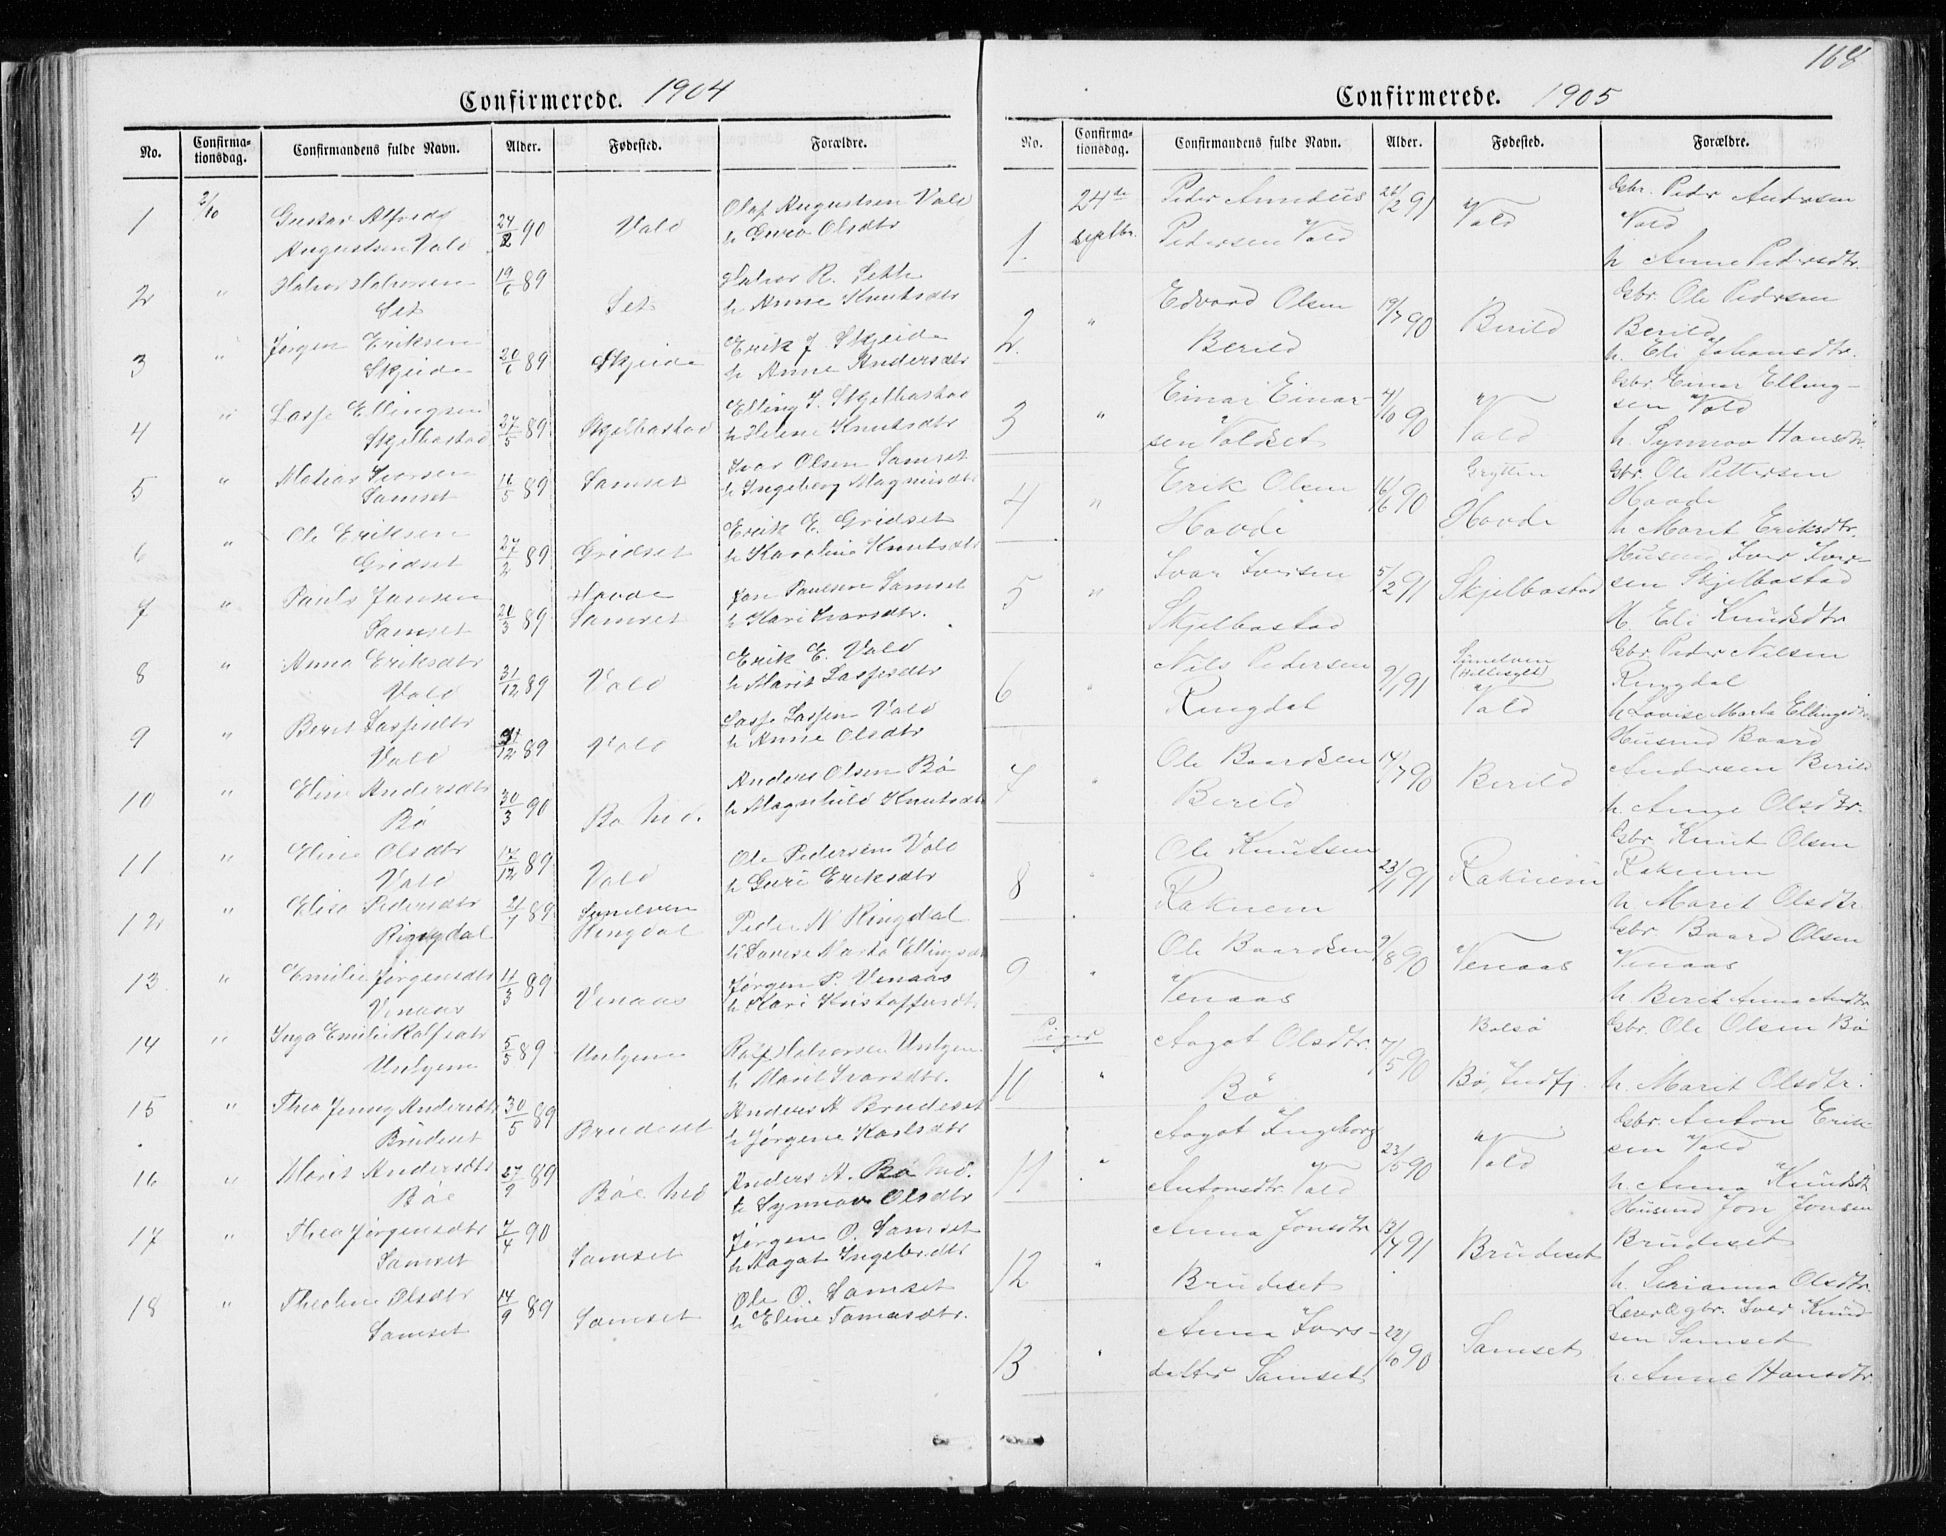 Confirmerede. 1904
No. Confirma-tionsdag. Confirmandens fulde Navn. Alder. Fødested. Forældre.
1 2/10 Gustav Alfred Augustsen Vold 24/2 90 Vold Olaf Augustsen Vold
h Guro Olsdtr
2 " Halvor Halvorsen Set 19/6 89 Set Halvor R. Sette
h Anne Knutsdtr
3 " Jørgen Eriksen Skjeide 20/6 89 Skjeide Erik J Skjeide
h Anne Andersdtr
4 " Lasse Ellingsen Skjelbostad 27/5 89 Skjelbostad Elling I. Skjelbostad
h Helene Knutsdtr
5 " Matias Ivarsen Samset 16/5 89 Samset Ivar Olsen Samset
h Ingeborg Magnusdtr
6 " Ole Eriksen Gridset 27/2 89 Gridset Erik E. Gridset
h Karoline Knutsdtr
7 " Pauls Jonsen Samset 20/3 89 Hovde Samset Jon Paulsen Samset
h Kari Ivarsdtr.
8 " Anna Eriksdtr Vold 31/12 89 Vold Erik E. Vold
h Marit Lassesdtr
9 " Beret Lassesdtr Vold 31/12 89 Vold Lasse Lassen Vold
h Anne Olsdtr
10 " Eline Andersdtr Bø 30/3 90 Bø Anders Olsen Bø
h Magnhild Knutsdtr
11 " Eline Olsdtr Vold 17/12 89 Vold Ole Pedersen Vold
h Guri Eriksdtr
12 " Elise Pedersdtr Ringdal 21/7 89 Sunelven Ringdal Peder N Ringdal
h Lovise Marta Ellingsdtr
13 " Emilie Jørgensdtr Venaas 4/3 89 Venaas Jørgen P. Venaas
h Kari Kristoffersdtr
14 " Inga Emilie Rolfsdtr Unhjem 5/5 89 Unhjem Rolf Halvorsen Unhjem
h Marit Ivarsdtr.
15 " Thea Jenny Andersdtr Brudeset 30/5 89 Brudeset Anders A Brudeset
h Jørgine Karlsdtr
16 " Marit Andersdtr Bøe 27/9 89 Bøe Anders A. Bø
h Synnøve Olsdtr
17 " Thea Jørgensdtr Samset 7/4 90 Samset Jørgen O. Samset
h Aagot Ingebrdtr
18 " Theoline Olsdtr Samset 14/9 89 Samset Ole O. Samset
h Eline Tomasdtr.
168
Confirmerede. 1905
No. Confirma-tionsdag. Confirmandens fulde Navn. Alder. Fødested. Forældre.
1. 24de septbr. Peder Pedersen Vold 26/2 91 Vold Gbr. Peder Andersen
Vold
h Anne Pedersdtr.
2. " Edvard Olsen Berild 19/7 90 Berild Gbr. Ole Pedersen
Berild
h. Eli Johansdtr.
3 " Einar Einarsen Voldset 4/10 90 Vold Gbr Einar Ellingsen Vold
h. Synnøv Hansdtr.
4 " Erik Olsen Hovde 16/6 90 Grytten Hovde Gbr. Ole Pettersen
Hovde
h Maret Eriksdtr.
5 " Ivar Iversen Skjelbostad 5/2 91 Skjelbostad Husmd Iver Iversen Skjelbostad
h. Eli Knudsdtr
6 " Nils Pedersen Ringdal 9/1 91 Sunelven (Hellesylt) Vold Gbr Peder Nilsen
Ringdal
h Lovise Marta Ellingsdtr
7 " Ole Baardsen Berild 14/7 90 Berild Husmd Baard
Andersen Berild
h. Anne Olsdtr.
8 " Ole Knutsen Raknem 23/1 91 Raknem Gbr Knut Olsen
Raknem
h Maret Olsdtr
9 " Ole Baardsen Venaas 9/8 90 Venaas Gbr Baard Olsen
Venaas
h Beret Anna
Piger
10 " Aagot Olsdtr. Bø 7/5 90 Bolsø Bø, Indfj. Gbr. Ole Olsen Bø
h. Marit Olsdtr.
11 " Aagot Ingeborg Antonsdtr. Vold 23/5 90 Vold Gbr Anton Eriksen Vold
h. Anna Knudsdt
12 " Anna Jonsdtr Brudeset 13/4 91 Brudeset Husmd Jon Jonsen
Brudeset
h. Serianna Olsdtr
13 " Anna Iversdatter Samset 22/10 90 Samset Gbr. Iver Knudsen Samset
h. Anne Hansdtr.